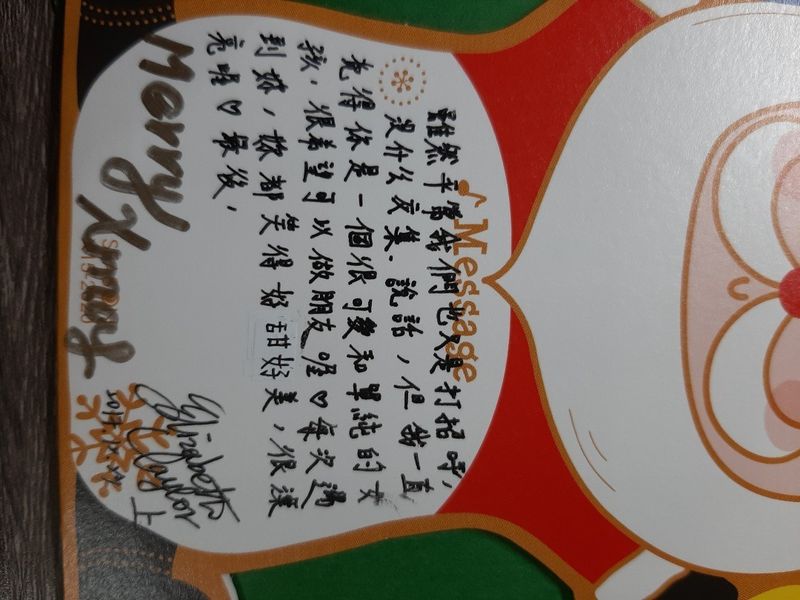 Message
雖然平常我們也只是打招呼,
沒什么交集、說話,但我一直
覺得你是一個很可愛和單純的女
孩,很希望可以做朋友喔♡每次遇
到妳,妳都笑得好甜好美,很漂
亮喔♡最後,
Merry Xmas
Elizabeth Taylor 上